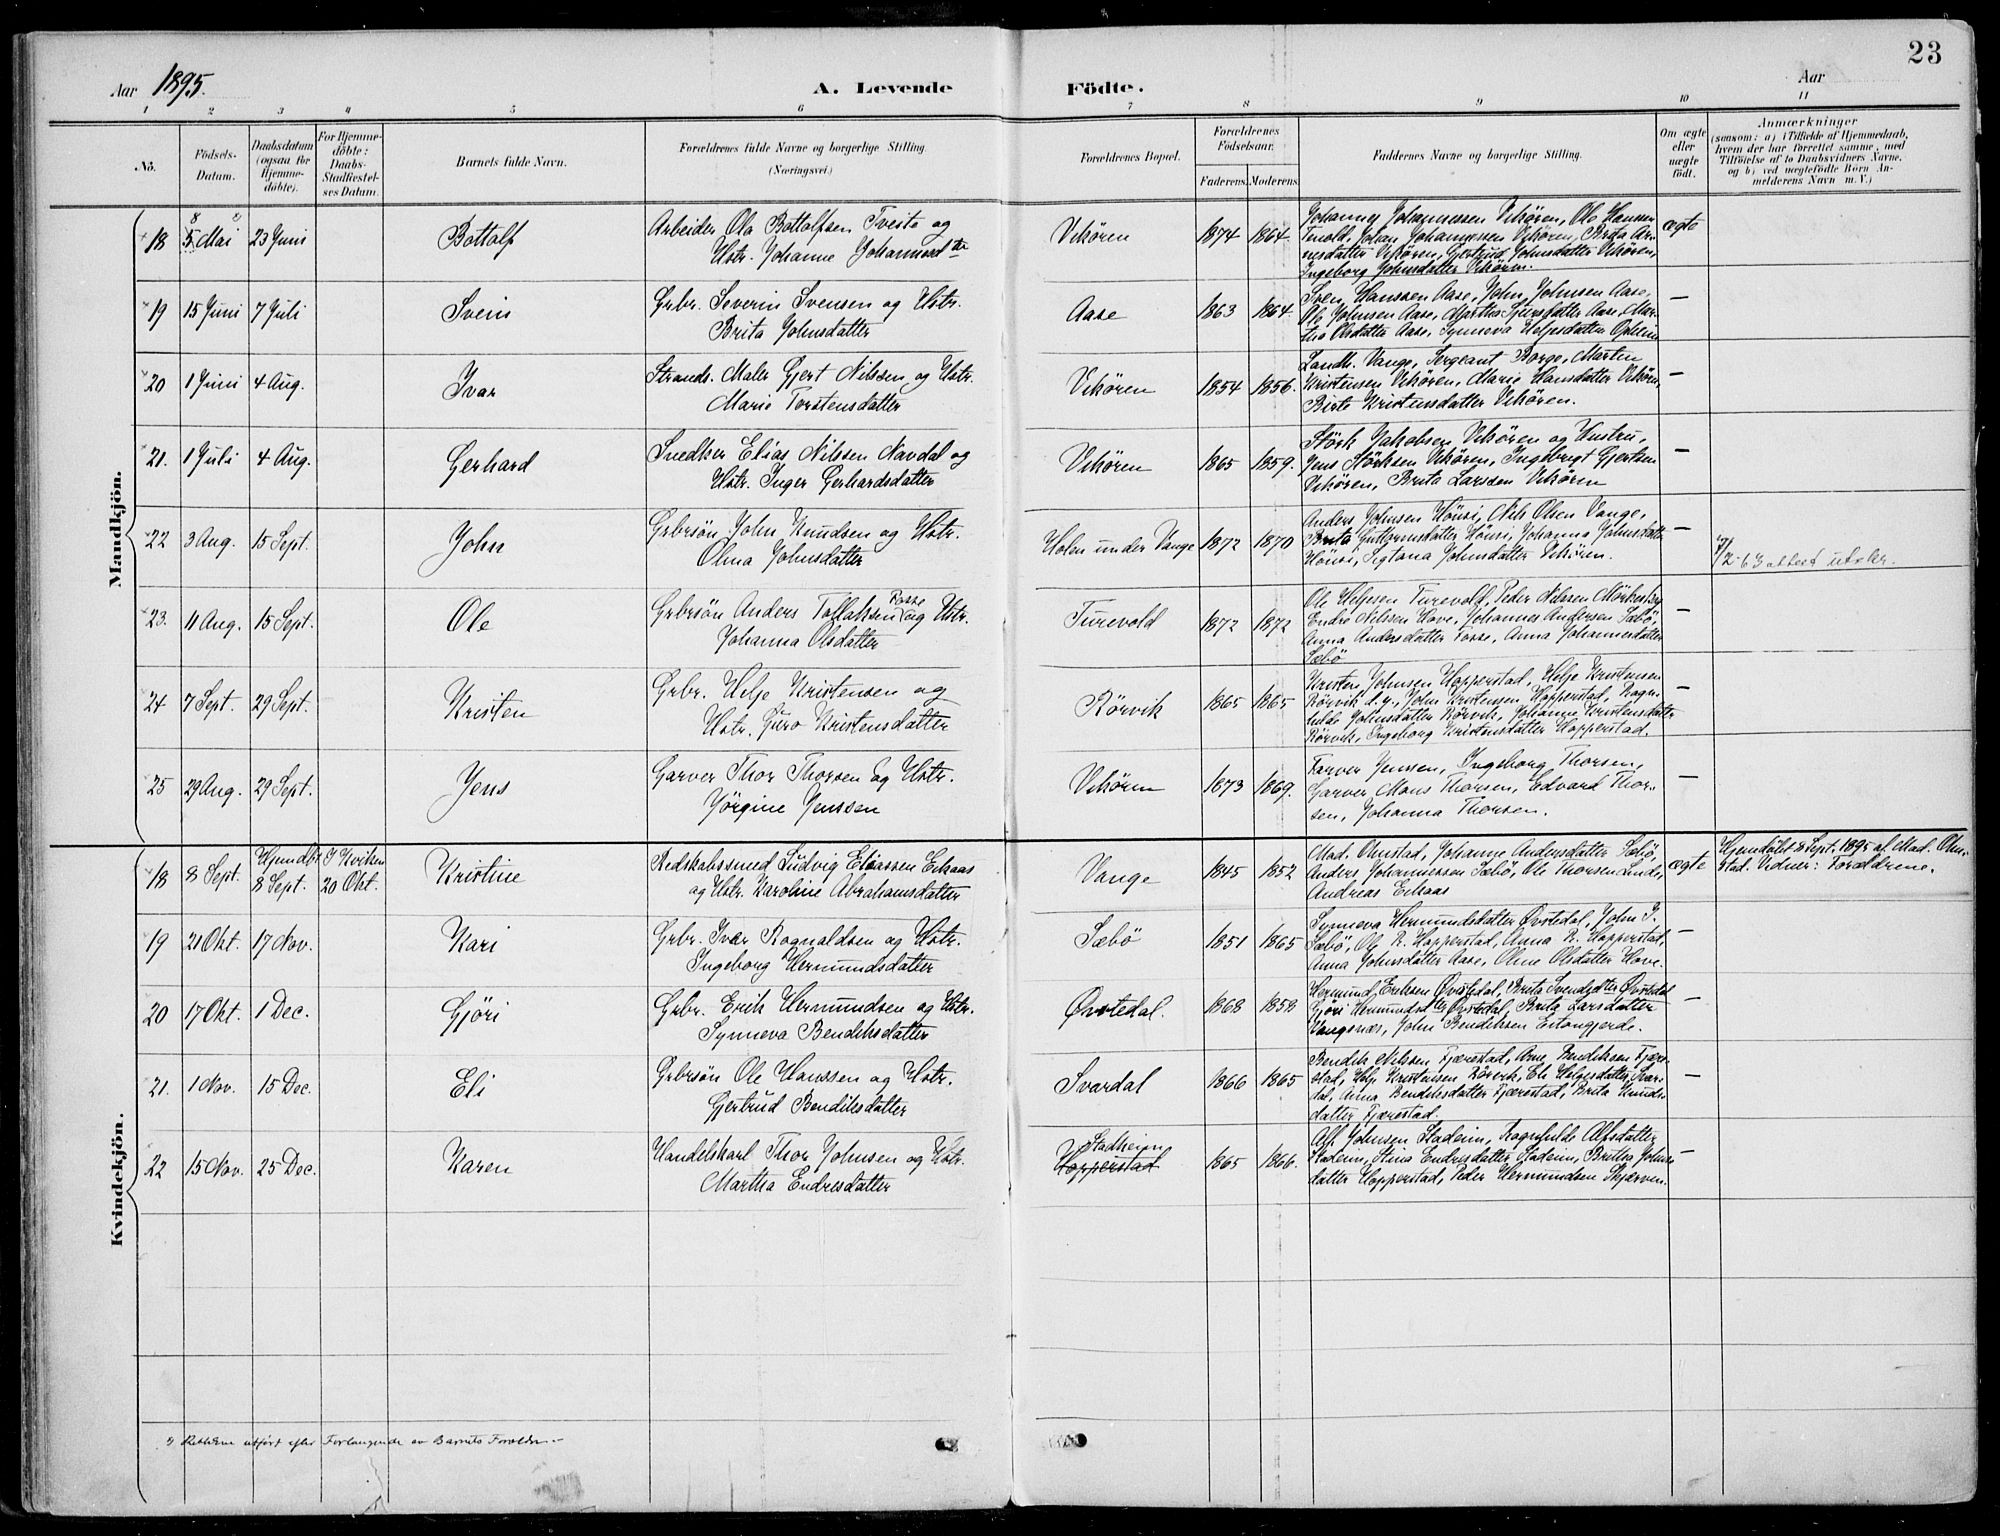 23
Aar 1895.
A. Levende Födte.
Aar
1 2 3 4 5 6 7 8 9 10 11
No.
Födsels-Datum.
Daabsdatum (ogsaa for Hjemmedöbte).
For Hjemmedöbte: Daabs-Stadfæstelses Datum.
Barnets fulde Navn.
Forældrenes fulde Navne og borgerlige Stilling. (Næringsvei.)
Forældrenes Bopæl.
Forældrenes Födselsaar.
Faderens. Moderens.
Faddernes Navne og borgerlige Stilling.
Om ægte eller uægte födt.
Anmærkninger
(saasom: a) i Tilfælde af Hjemmedaab, hvem der har forrettet samme, med Tilföielse af to Daabsvidners Navne, og b) ved uægtefödte Börn Anmelderens Navn m. V.)
Mandkjön.
18 5 Mai 8 23 Juni Bottolf Arbeider Ola Bottolfsen Tveite og
Hstr. Johanne Johannesdtr
Vikören 1874 1864.
Johannes Johannessen Vikören, Ole Hanssen
Tenold, Johan Johannessen Vikören, Brita Arnesdatter Vikören, Gjertrud Johnsdatter Vikören,
Ingeborg Johnsdatter Vikören.
ægte
19 15 Juni 7 Juli Svein Grbr. Severin Svensen og Hstr.
Brita Johnsdatter
Aase 1863 1864.
Sven Hanssen Aase, John Johnsen Aase,
Ole Johnsen Aase, Martha Sjursdatter Aase, Martha Olsdatter Aase, Synneva Heljesdatter Opheim
—
20 1 Juni 4 Aug. Ivar Strands. Maler Gjert Nilssen og Hstr.
Marie Torstensdatter
Vikören 1854 1856.
Landh. Vange, Sergeant Borge, Marten
Kristensen Vikören, Marie Hansdatter Vikören,
Birte Kristensdatter Vikören.
—
21. 1 Juli 4 Aug. Gerhard Snedker Elias Nilssen Navdal og
Hstr. Inger Gerhardsdatter
Vikören 1865 1859.
Störk Jakobsen Vikören og Hustru,
Jens Störksen Vikören, Ingebrigt Gjertsen
Vikören, Brita Larssen Vikören
—
22 3 Aug. 15 Sept. John Grbrsön John Knudsen og Hstr.
Olina Johnsdatter
Holen under Vange 1872 1870
Anders Johnsen Hönsi, Nils Olsen Vange,
Brita Guttormsdatter Hönsi, Johanna Johnsdatter
Hönsi, Sigtana Johnsdatter Vikören.
—
7/2-63 attest utskr.
23. 11 Aug. 15 Sept. Ole Grbrsön Anders Tollaksen Fosse og Hstr.
Johanna Olsdatter
Turevold 1872 1872
Ole Heljesen Turevold, Peder Nilssen Mörkesberg
Endre Nilssen Hove, Johannes Andersen Sæbö,
Anna Andersdatter Fosse, Anna Johannesdatter
Sæbö
—
24 7 Sept. 29 Sept. Kristen Grbr. Helje Kristensen og
Hstr. Guro Kristensdatter
Rörvik 1865 1865
Kristen Johnsen Hopperstad, Helje Kristensen
Rörvik d.y., John Kristensen Hopperstad, Ragnhilde Johnsdatter Rörvik, Johanne Kristensdatter
Rörvik, Ingeborg Kristensdatter Hopperstad.
—
25 29 Aug. 29 Sept. Jens Garver Thor Thorsen og Hstr.
Jörgine Jenssen
Vikören 1873 1869.
Farver Jenssen, Ingeborg Thorsen,
Garver Mons Thorsen, Edvard Thorsen, Johanna Thorsen.
—
Kvindekjön.
18 8 Sept. Hjemdöbt 8 Sept. I Kirken 20 Okt. Kristine Redskabssmed Ludvig Eliassen Eikaas
og Hstr. Karoline Abrahamsdatter
Vange 1845 1852
Mad. Ornstad, Johanne Andersdatter Sæbö,
Anders Johannessen Sæbö, Ole Thorsen Linde,
Andreas Eikaas
ægte
Hjemdöbt 8 Sept. 1895 af Mad. Ornstad. Vidner: Forældrene.
19 21 Okt. 17 Nov. Kari Grbr. Ivar Ragnaldsen og Hstr.
Ingeborg Hermundsdatter
Sæbö 1851 1865
Synneva Hermundsdatter Övstedal, John I.
Sæbö, Ole R. Hopperstad, Anna R. Hopperstad,
Anna Johnsdatter Aase, Oline Olsdatter Hove.
—
20 17 Okt. 1 Dec. Gjöri Grbr. Erik Hermundsen og Hstr.
Synneva Bendiksdatter
Övstedal. 1868 1858
Hermund Eriksen Övstedal, Brita Svendsdtr Övstedal
Gjöri Hermundsdtr Övstedal, Brita Larsdatter
Vangsnæs, John Bendiksen Eitongjerde.
—
21. 1 Nov. 15 Dec. Eli Grbrsön Ole Hanssen og Hstr.
Gjertrud Bendiksdatter
Svardal 1866 1865
Bendik Nilssen Fjærestad, Arne Bendiksen Fjærestad, Helje Kristensen Rörvik, Eli Helgesdatter Svardal, Anna Bendiksdatter Fjærestad, Brita Knudsdatter Fjærestad.
—
22 15 Nov. 25 Dec. Karen Handelskarl Thor Johnsen og Hstr.
Martha Endresdatter
Stadheim
Hopperstad 1865 1866.
Alf Johnsen Stadeim, Ragnhilde Alfsdatter
Stadeim Stina Endresdatter Stadeim, Britha Johnsdatter Hopperstad, Peder Hermundsen Skjærven.
—
*) Rettelsen utfört efter Forlangende av Barnets Forældre.